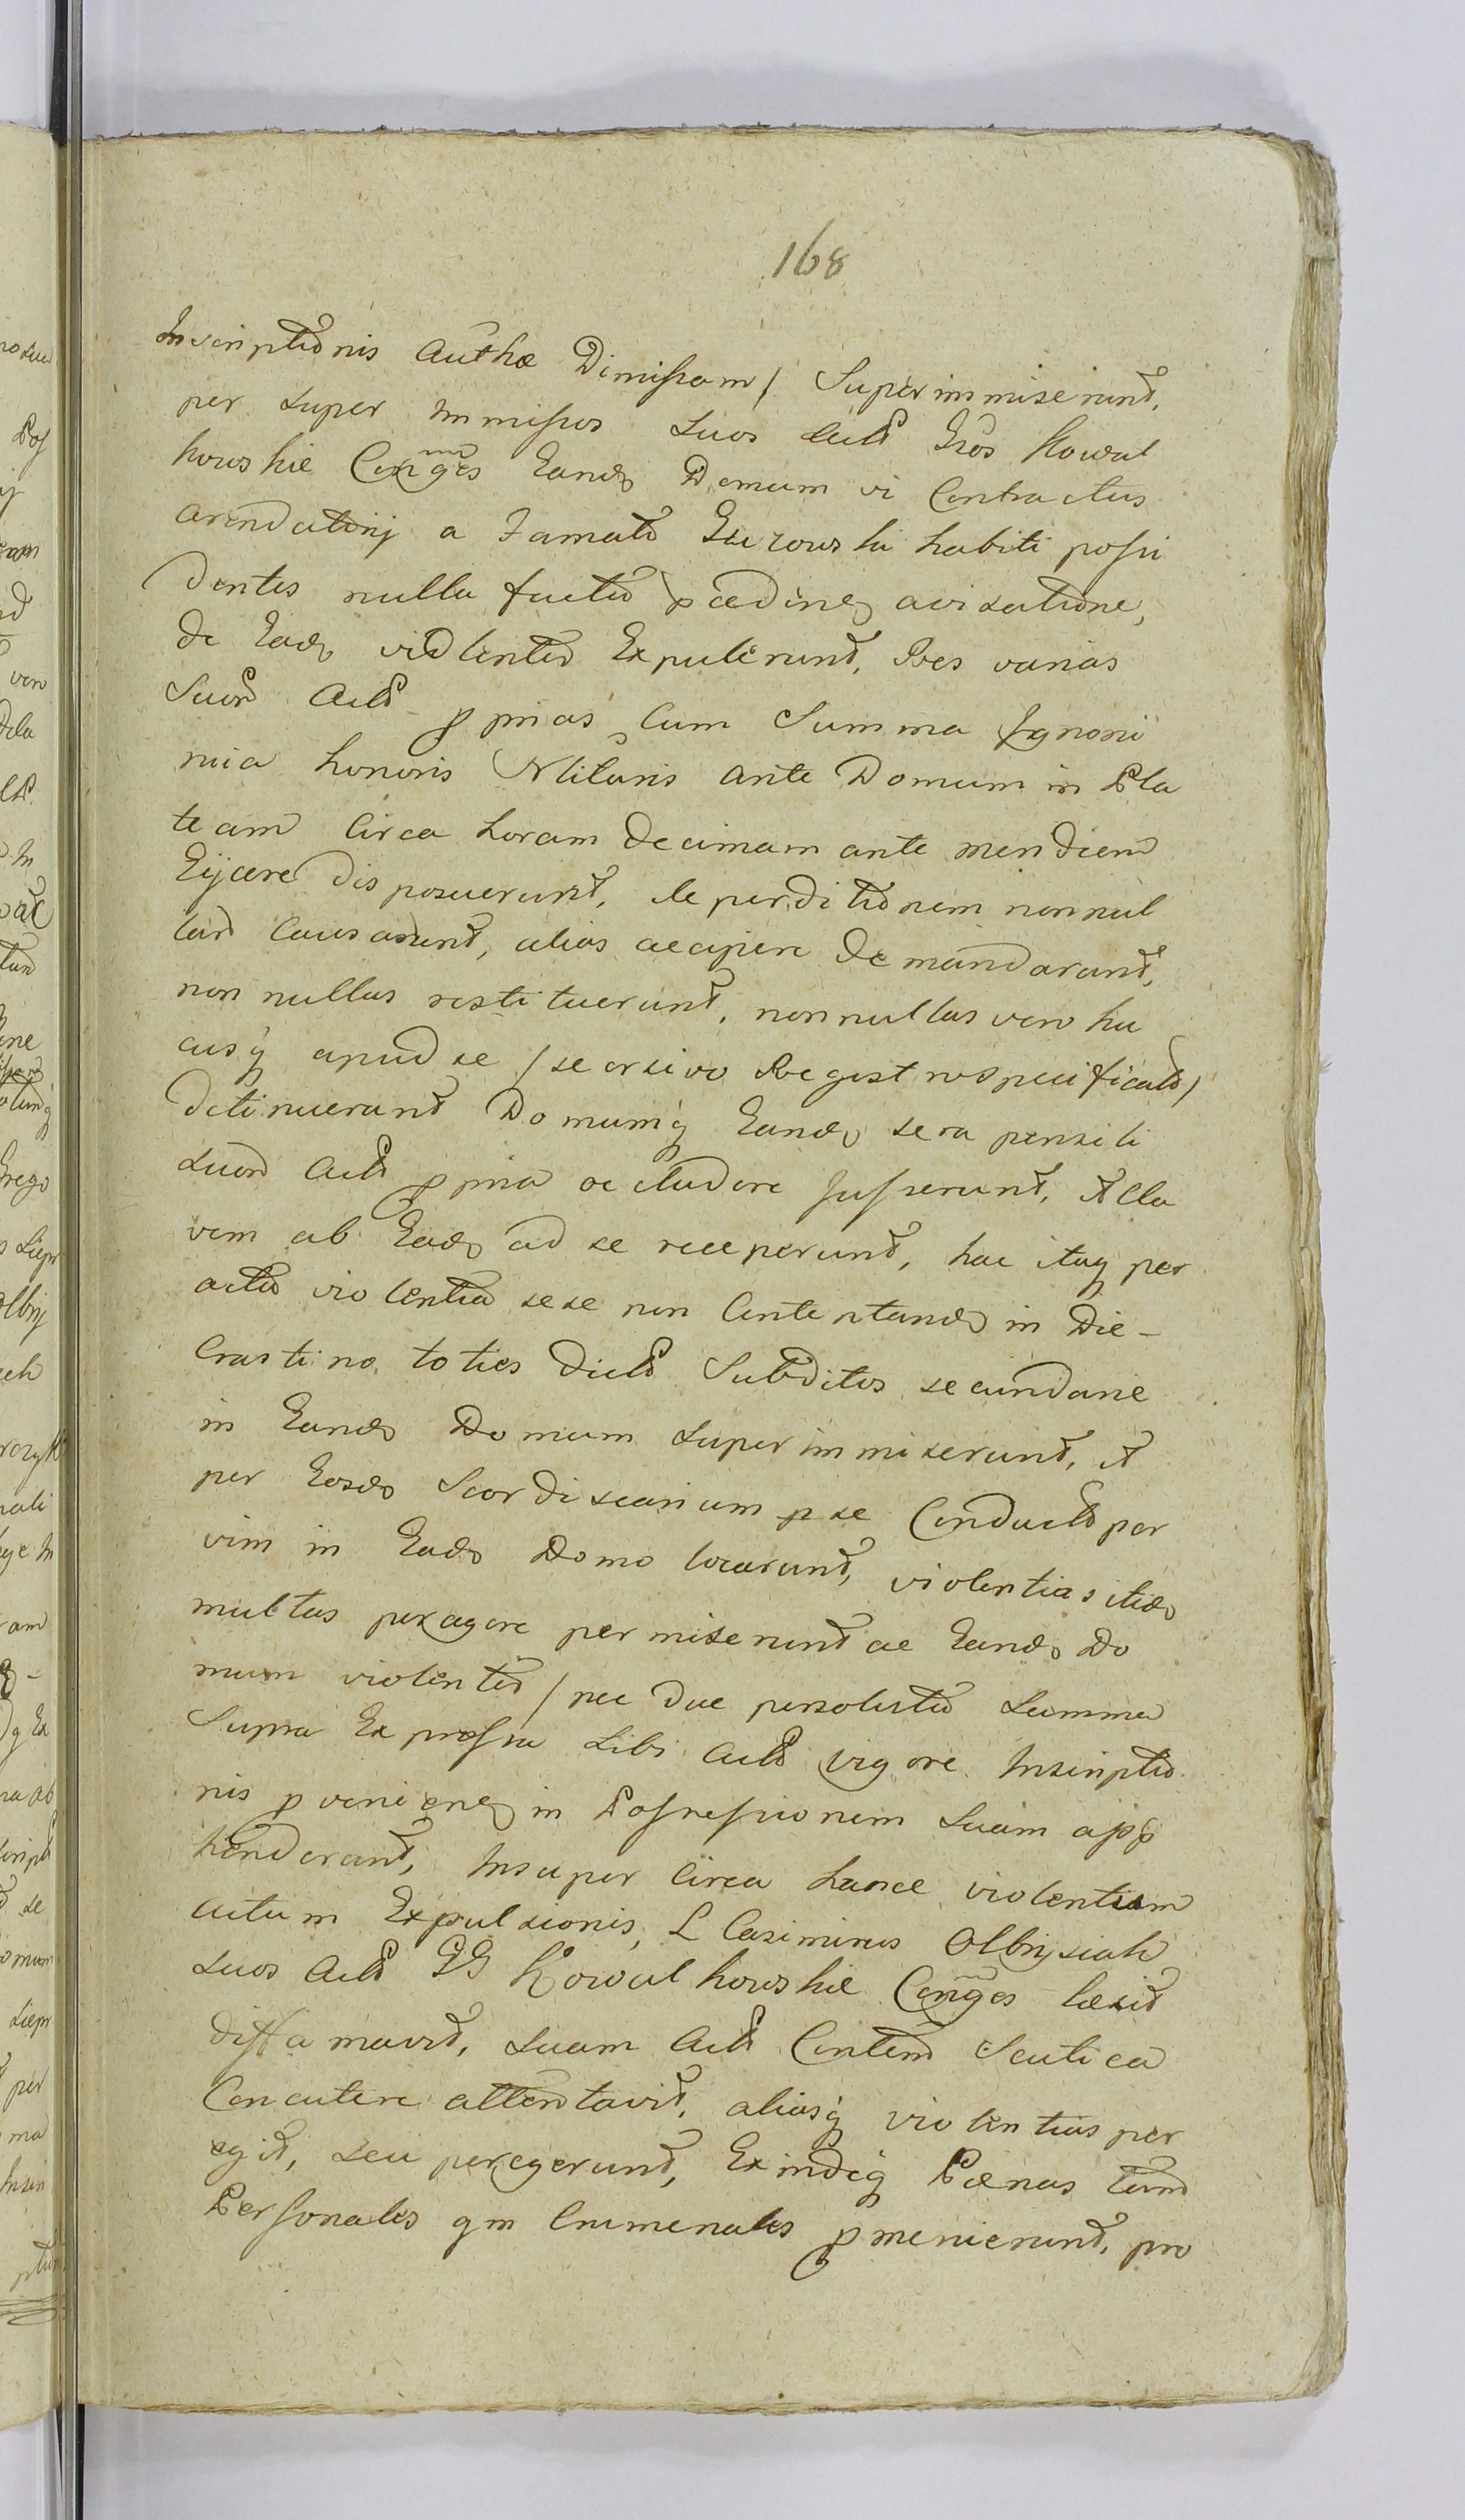 168
Inscriptionis Authæ Dimissam / Superimmiserunt,
per super Immissos Suos Actd Gros Kowal
kowskie Conges Eande Domum vi Contractus
arendatorij a Famato Gurowski habiti possi
dentes nulla facta pædine avisatione,
de Eade violenter Expulerunt, Res varias
Suord Actd pprias Cum Summa Ignomi
nia honoris Militaris ante Domum in Pla
team Circa horam decimam ante meridiem
Eijcere disposuerunt, deperditionem nonnul
lard Causarunt, alias accipere demandarunt,
non nullas restituerunt, nonnullas vero hu
cusq apud se / seorsivo Regestro specificatd /
detinuerunt Domumq Eande sera pensili
Suord Actd ppria occludere Jusserunt, Cla
vem ab Eade ad se receperunt, hac itaq per
acta violentia sese non Contentande in Die -
Crastino toties dictd Subditos secundarie
in Eande Domum superimmiserunt, et
per Eosde Scordiscarium p se Conductd per
vim in Eade Domo locarunt, violentias itide
multas peragere permiserunt ac Eande Do
mum violenter / nec dum persoluta Summa
Supra Expressa Sibi Actd vigore Inscriptio
nis pveniene in Possessionem Suam app
henderunt, Insuper Circa hance violentiam
actum Expulsionis, L Casimirus Olbrysiak
Suos Actd GG Kowalkowskie Conges læsit
diffamavit, Suam Actd Contem Scutica
Concutere attentavit, aliasq violentias per
egit, seu peregerunt, Exindeq Pænas tam
Personales qm Criminales pmeruerunt, pro